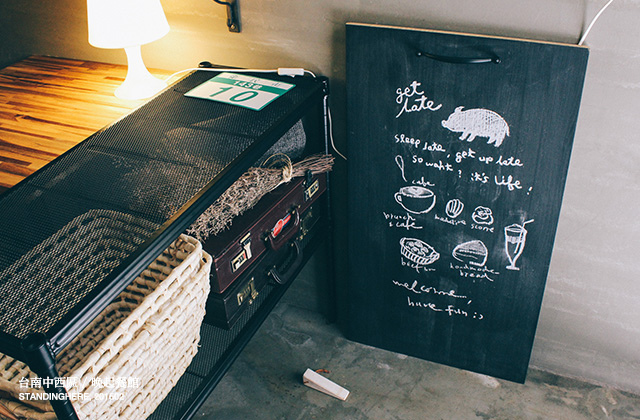 10
get
late
sleep late, get up late
so what? it's life!
cafe
brunch
& cafe
madeleine
scone
handmade
bread
welcome
have fun :)
台南中西區/晚起餐館
STANDINGHERE. 201502